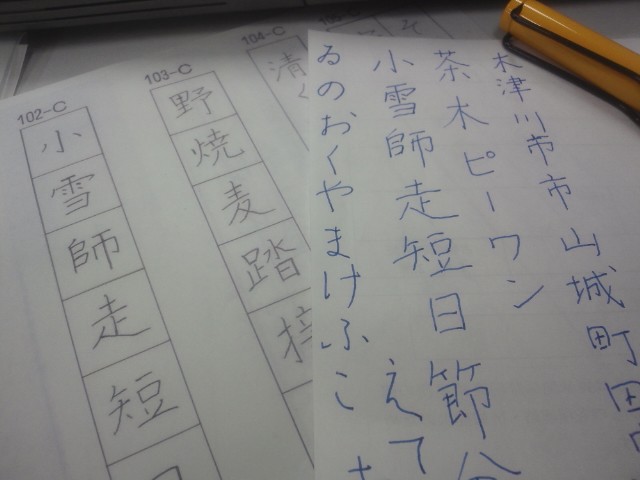 木津川市市山城町田
茶木ピーワン
小雪師走短日節分
えて
ゐのおくやまけふこ
104-C
清く
103-C
野焼麦踏
102-C
小雪師走短